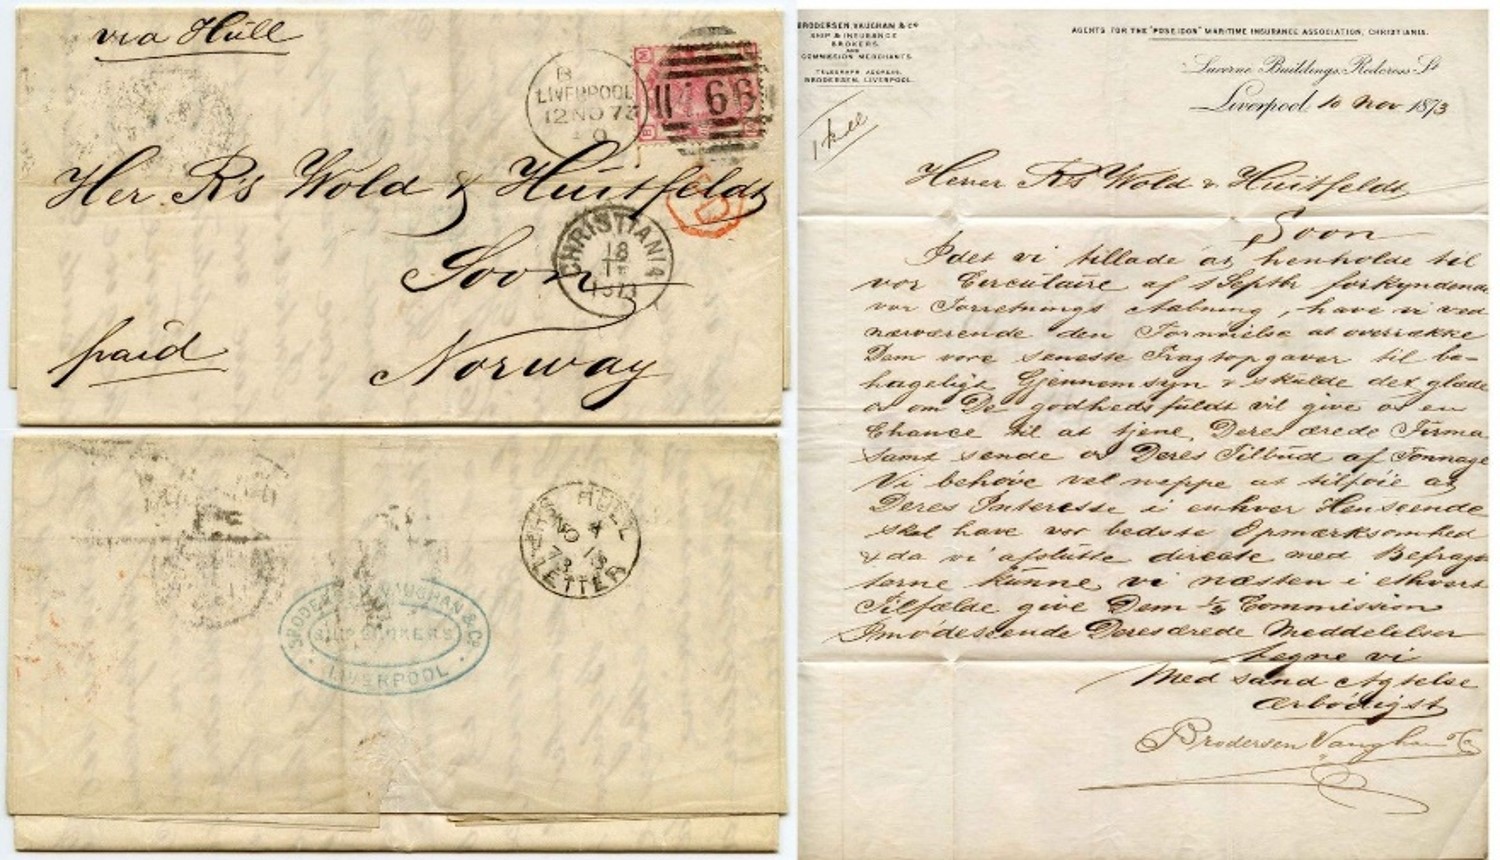 via Hull
B
LIVERPOOL
12 NO 73
466
Her R's Wold & Huitfeldt
PD
Soon
CHRISTIANIA
18
11
1873
paid
Norway
HULL
A
NO 13
73
LETTER
BRODERSEN, VAUGHAN & Co
SHIP BROKERS
LIVERPOOL
BRODERSEN, VAUGHAN & Co
SHIP & INSURANCE
BROKERS.
AND
COMMISSION MERCHANTS.
TELEGRAPH ADDRESS,
BRODERSEN, LIVERPOOL.
AGENTS FOR THE "POSEIDON" MARITIME INSURANCE ASSOCIATION, CHRISTIANIA.
Lucerne Buildings, Redcross St
Liverpool, 10 Nov 1873
Herrer R's Wold & Huitfeldt
Soon
Idet vi tillade os henholde til
vor Circulaire af 1 Septbr forkyndende
vor Forretnings Aabning, have vi ved
nærværende den Fornøielse at overrække
Dem vore seneste Fragtopgaver til be-
hageligt Gjennemsyn & skulde det glæde
os om De godhedsfuldt vil give os en
Chance til at tjene Deres ærede Firma
samt sende os Deres Tilbud af Tonnage
Vi behøve vel neppe at tilføie at
Deres Interesse i enhver Henseende
skal have vor bedste Opmærksomhed
& da vi afslutte directe med Befragt
terne kunne vi næsten i ethvert
Tilfælde give Dem ⅓ Commission
Imødeseende Deres ærede Meddelelser
tegne vi
Med sand Agtelse
Ærbødigst
Brodersen Vaughan & Co